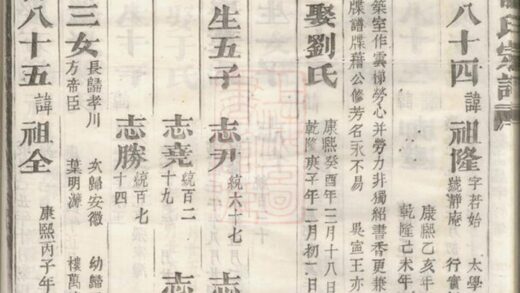 氏宗譜
八十四 諱 祖隆 字君始 太學
號靜庵 行實
康熙乙亥年
乾隆己未年
築室作雲梯勞心并勞力非獨紹書香更兼
牒譜牒藉公修芳名永不易 吳寧王亦
娶劉氏 康熙癸酉年二月十八日
乾隆庚子年二月初一日
生五子 志尹 統六十七 志
志堯 統百二十九 志
志勝 統百七十四
三女 長歸孝川方帝臣 次歸安徽葉明 幼歸樓萬
八十五 諱 祖全 康熙丙子年